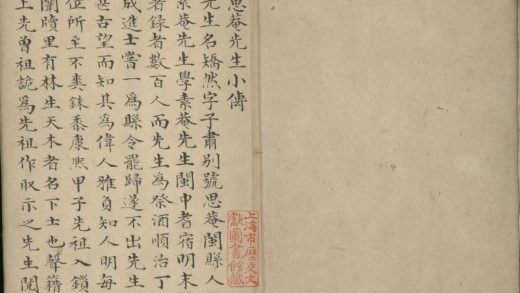 思菴先生小傳
先生名矯然字子肅别號思菴閩縣人
素菴先生學素菴先生閩中耆宿明末
著錄者數百人而先生為祭酒順治丁
成進士嘗一為縣令罷歸遂不出先生
甚古望而知其為偉人雅負知人明每
位所至不爽銖黍康熙甲子先祖入鎖
闈牘里有林生天木者名下士也聲籍
上先曾祖詭為先祖作取示之先生閱
上海市歷史文
獻圖書館藏